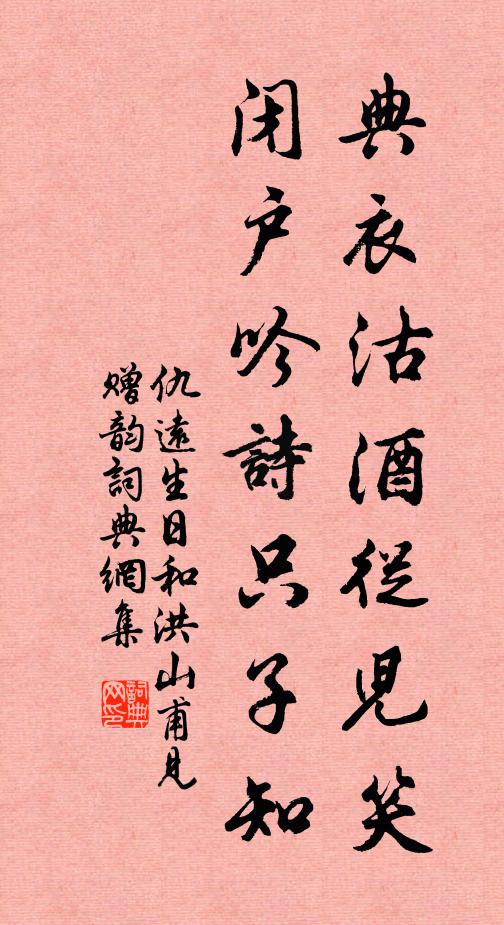 典衣沽酒從兒笑
闭户吟詩只子知
仇遠生日和洪山甫見
赠韵詞典網集
詞典网印